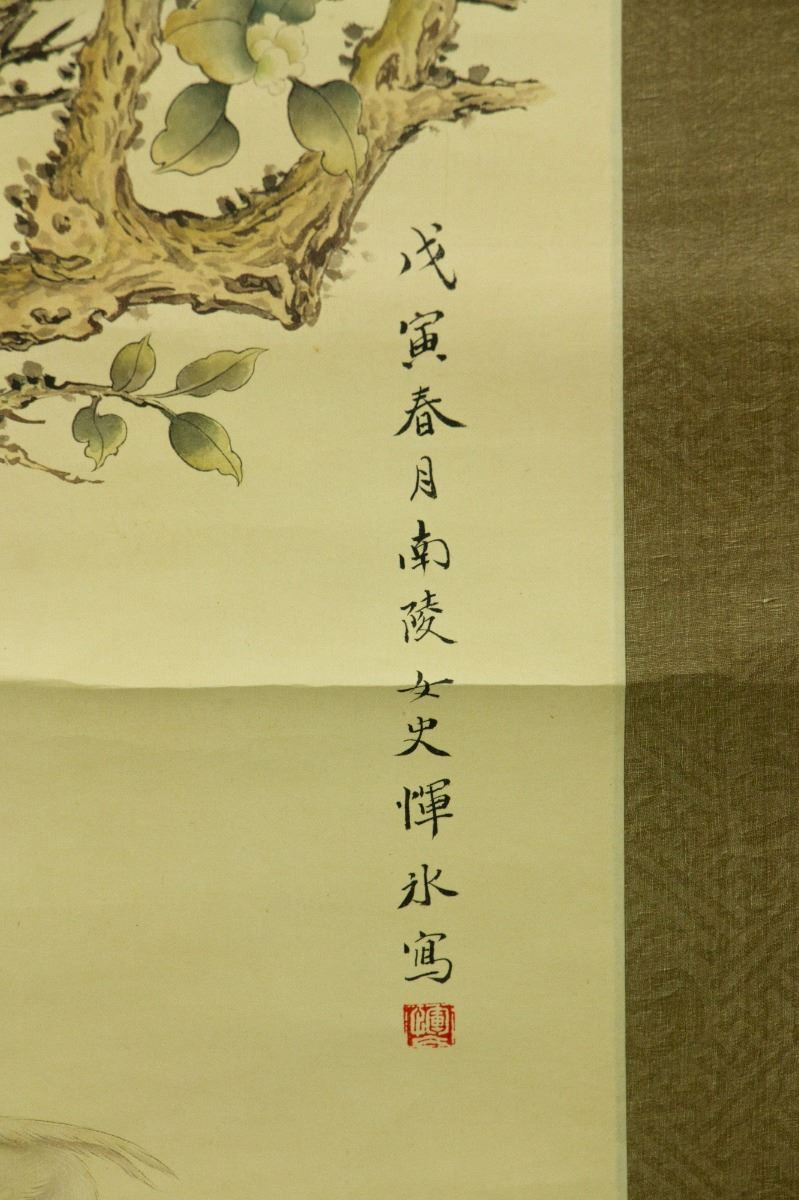 戊寅春月南陵女史惲氷寫